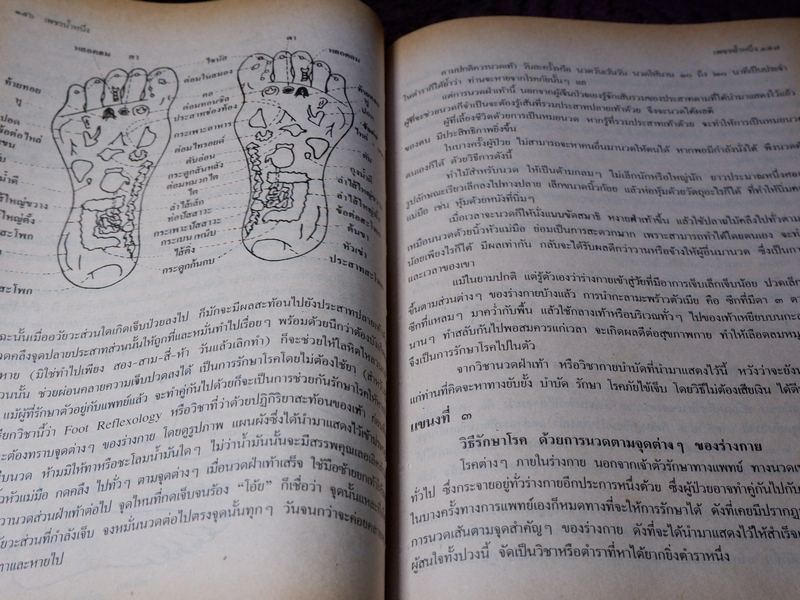 ๑๕๖ เพชรน้ำหนึ่ง
หลอดลม ตา
ไซนัส
ตา หลอดลม
ต่อมในสมอง
ท้ายทอย
หู
ปอด
คอ
ต่อมทอนซิล
ประสาทช่องท้อง
กระเพาะอาหาร
ต่อมไทรอยด์
ตับอ่อน
กระดูกสันหลัง
ต่อมหมวกไต
ไต
ลำไส้เล็ก
ท่อปัสสาวะ
กระเพาะปัสสาวะ
ไส้ติ่ง
กระดูกก้นกบ
ตับ
ถุงน้ำดี
ลำไส้ใหญ่ขวาง
ข้อต่อสะโพก
หัวเข่า
ประสาทสะโพก
ละนั้นเมื่ออวัยวะส่วนใดเกิดเจ็บป่วยลงไป ก็มักจะมีผลสะท้อนไปยังประสาทปลาย
วดคลึงจุดปลายประสาทส่วนนั้นให้ถูกที่และหมั่นทำไปเรื่อยๆ พร้อมด้วยนึกว่าต้อง
หาย (มิใช่ทำไปเพียง สอง-สาม-สี่-ห้า วันแล้วเลิกทำ) ก็จะช่วยให้โลหิต
วนนั้น ช่วยผ่อนคลายความเจ็บปวดลงได้ เป็นการรักษาโรคโดยไม่ต้องใช้ยา
แม้ผู้ที่รักษาตัวอยู่กับแพทย์แล้ว จะทำคู่กันไปด้วยก็จะเป็นการช่วยกันรักษาโรค
ยกวิชานี้ว่า Foot Reflexology หรือวิชาที่ว่าด้วยปฏิกิริยาสะท้อนของเท้า
ะต้องทราบจุดต่างๆ ของร่างกาย โดยดูรูปภาพ แผนผังซึ่งได้นำมาแสดงไว้
บนวด ห้ามมิให้ทาหรือชะโลมน้ำมันใดๆ ไม่ว่าน้ำมันนั้นจะมีสรรพคุณ
หัวแม่มือ กดคลึง ไปทั่วๆ ตามจุดต่างๆ เมื่อนวดฝ่าเท้าเสร็จ ใช้มือซ้าย
วานวดส่วนฝ่าเท้าต่อไป จุดไหนที่กดเจ็บจนร้อง “โอ้ย” ก็เชื่อว่า จุดนั้น
วัยวะส่วนที่กำลังเจ็บ จงหมั่นนวดต่อไปตรงจุดนั้นทุกๆ วันจนกว่าจะค่อย
าและหายไป
เพชรน้ำหนึ่ง ๑๕๗
ตามปกติควรนวดเท้า วันละครั้งคือ นวดวันเว้นวัน นวดให้นาน ๑๐ ถึง ๒๐ นาทีเป็นประจำ
ในตำราก็ได้ย้ำว่า ท่านจะหายจากโรคภัยนั้นๆ
แต่การนวดฝ่าเท้านี้ นอกจากผู้เจ็บป่วยเองรู้จักเส้นรวมของประสาทตามที่ได้นำมาแสดงไว้แล้ว
ผู้ที่จะช่วยนวดก็จำเป็นจะต้องรู้เส้นที่รวมประสาทปลายเท้าด้วย จึงจะนวดได้ผลดี
ผู้ที่เลี้ยงชีวิตด้วยการเป็นหมอนวด หากรู้ที่รวมประสาทเท้าด้วย จะทำให้การเป็นหมอนวด
ของตน มีประสิทธิภาพยิ่งขึ้น
ในบางครั้งผู้ป่วย ไม่สามารถจะหาคนอื่นมานวดให้ตนได้ หากพอมีกำลังนั่งได้ พึงนวด
ตนเองก็ได้ ด้วยวิธีการดังนี้
ทำไม้สำหรับนวด ให้เป็นด้ามกลมๆ ไม่เล็กนักหรือใหญ่นัก ยาวประมาณหนึ่งศอก
รูปลักษณะเรียวเล็กลงไปทางปลาย เล็กขนาดนิ้วก้อย แล้วห่อหุ้มด้วยวัตถุอะไรก็ได้ ที่ทำให้นิ่ม
แม่มือ เช่น หุ้มด้วยหนังที่นิ่มๆ
เมื่อเวลาจะนวดก็ให้นั่งแบบขัดสมาธิ หงายฝ่าเท้าขึ้น แล้วใช้ปลายไม้คลึงไปทั่วตาม
เหมือนนวดด้วยนิ้วหัวแม่มือ ย่อมเป็นการสะดวกมาก เพราะสามารถทำได้โดยตนเอง จะ
น้อยเพียงไรก็ได้ มีผลเท่ากัน กลับจะได้รับผลดีกว่าวานหรือจ้างให้ผู้อื่นมานวด ซึ่งเป็น
และเวลาของเขา
แม้ในยามปกติ แต่รู้ตัวเองว่าร่างกายเข้าสู่วัยที่มีอาการเจ็บเล็กเจ็บน้อย ปวดเล็ก
ขึ้นตามส่วนต่างๆ ของร่างกายบ้างแล้ว การนำกะลามะพร้าวตัวเมีย คือ ซีกที่มีตา ๓ ตา
ซีกที่แหลมๆ มาคว่ำกับพื้น แล้วใช้กลางเท้าหรือบริเวณทั่วๆ ไปของเท้าเหยียบบน
นานๆ ทำสลับกันไปพอสมควรแก่เวลา จะเกิดผลดีต่อสุขภาพกาย ทำให้เลือดลม
จึงเป็นการรักษาโรคไปในตัว
จากวิชานวดฝ่าเท้า หรือวิชากายบำบัดที่นำมาแสดงไว้นี้ หวังว่าจะยัง
แก่ท่านที่คิดจะหาทางยับยั้ง บำบัด รักษา โรคภัยไข้เจ็บ โดยวิธีไม่ต้องเสียเงิน ได้
แขนงที่ ๓
วิธีรักษาโรค ด้วยการนวดตามจุดต่างๆ ของร่างกาย
โรคต่างๆ ภายในร่างกาย นอกจากเจ้าตัวรักษาทางแพทย์ ทางนวด
ทั่วไป ซึ่งกระจายอยู่ทั่วร่างกายอีกประการหนึ่งด้วย ซึ่งผู้ป่วยอาจทำคู่กันไปกับ
ในบางครั้งทางการแพทย์เองก็หมดทางที่จะให้การรักษาได้ ดังที่เคยมีปรากฏ
การนวดเส้นตามจุดสำคัญๆ ของร่างกาย ดังที่จะได้นำมาแสดงไว้ให้สำเร็จ
ผู้สนใจทั้งปวงนี้ จัดเป็นวิชาหรือตำราที่หาได้ยากยิ่งตำราหนึ่ง